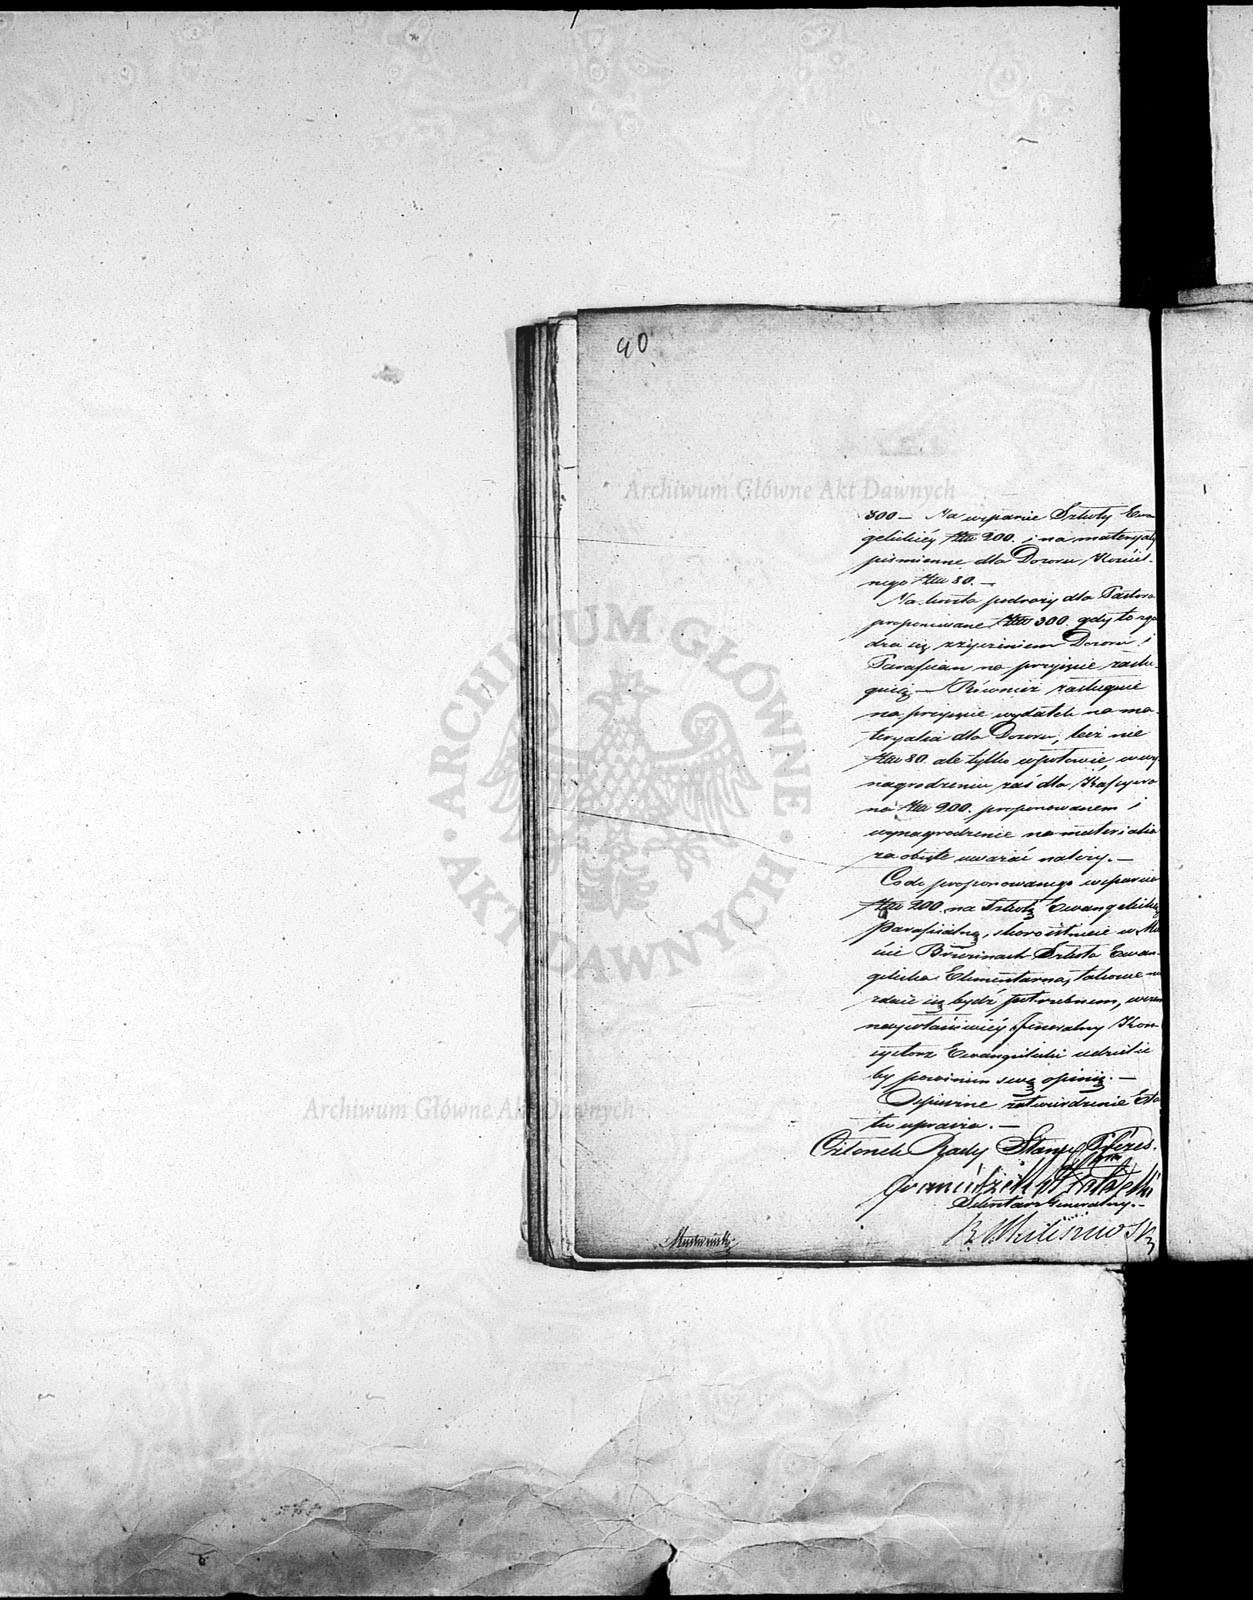 40
300 — Na wsparcie Szkoły Ewa
gelickiéy Złt 200. i na materyały
piśmienne dla Dozoru Kościel-
nego Złt 80. —
Na koszta podroży dla Pastora
proponowane Złt 300. gdy to zga
dza się z życzeniem Dozoru i
Parafian na przyięcie zasłu-
guią — Rownież zasługuie
na przyięcie wydatek na ma-
teryalia dla Dozoru, lecz nie
Złt 80. ale tylko w połowie, wwy
nagrodzeniu zaś dla Kassyera
na Złt 200. proponowanem i
wynagrodzenie na materialia
za obięte uważać należy. —
Co do proponowanego wsparcia
Złt 200. na Szkołę Ewangelicką
Parafialną, skoro istnieie w Mie
ście Brzezinach Szkoła Ewan-
gelicka Elementarna, takowe nie
zdaie się bydź potrzebnem, wczem
naywłaściwiéy Jeneralny Kon-
systorz Ewangelicki udzielić
by powinien swą opinię. —
O spieszne zatwierdzenie Eta
tu uprasza. —
Członek Rady Stanu Prezes.
Sekretarz Generalny. —
Archiwum Główne Akt Dawnych
ARCHIWUM GŁÓWNE · AKT DAWNYCH ·
Archiwum Główne Akt Dawnych